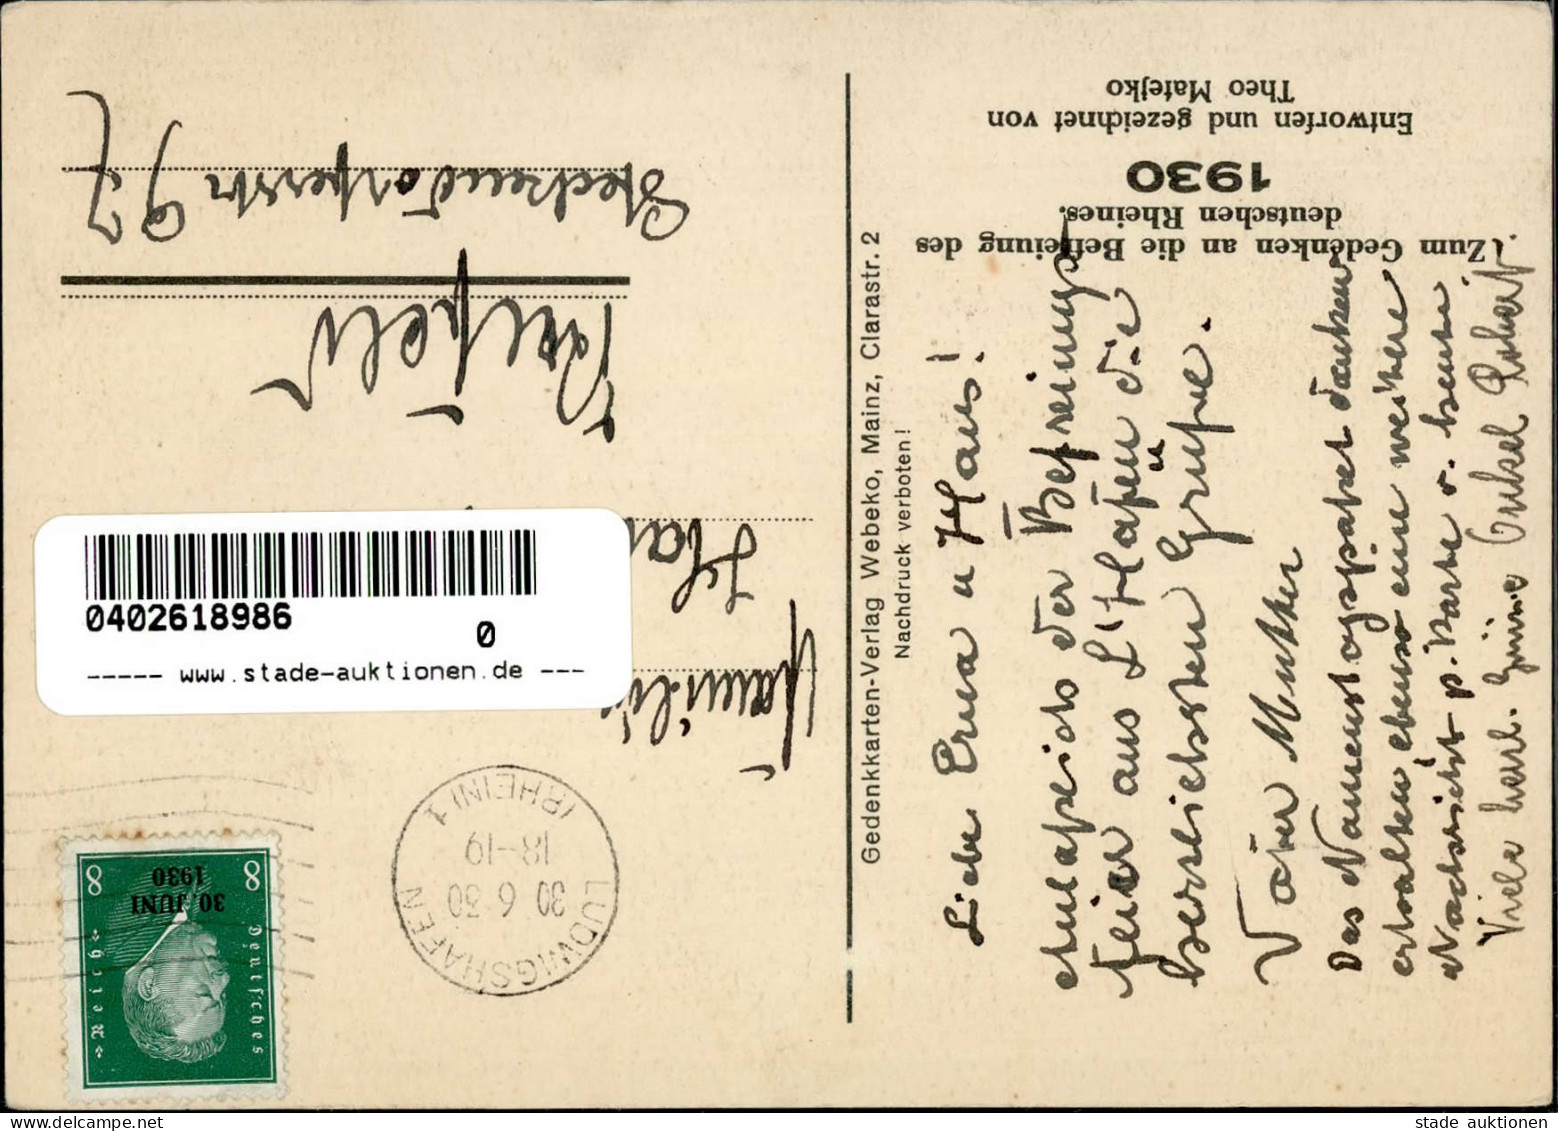 Zum Gedenken an die Befreiung des
deutschen Rheines.
1930
Entworfen und gezeichnet von
Theo Matejko
Gedenkkarten-Verlag Webeko, Mainz, Clarastr. 2
Nachdruck verboten!
Liebe Erna u Hans!
Anlässlich der Befreiungs
feier aus L'Hafen die
herzlichsten Grüße.
Vater Mutter
Das Namenstagspaket dankend
erhalten ebenso eine weitere
Nachricht p. Karte v. heute.
Viele herzl. Grüsse Onkel Robert
Familie
Krefeld
97
Deutsches
Reich
8
8
30 JUNI
1930
LUDWIGSHAFEN
(RHEIN) 1
30 6 30
18-19
0402618986
0
----- www.stade-auktionen.de ---
stade auktionen